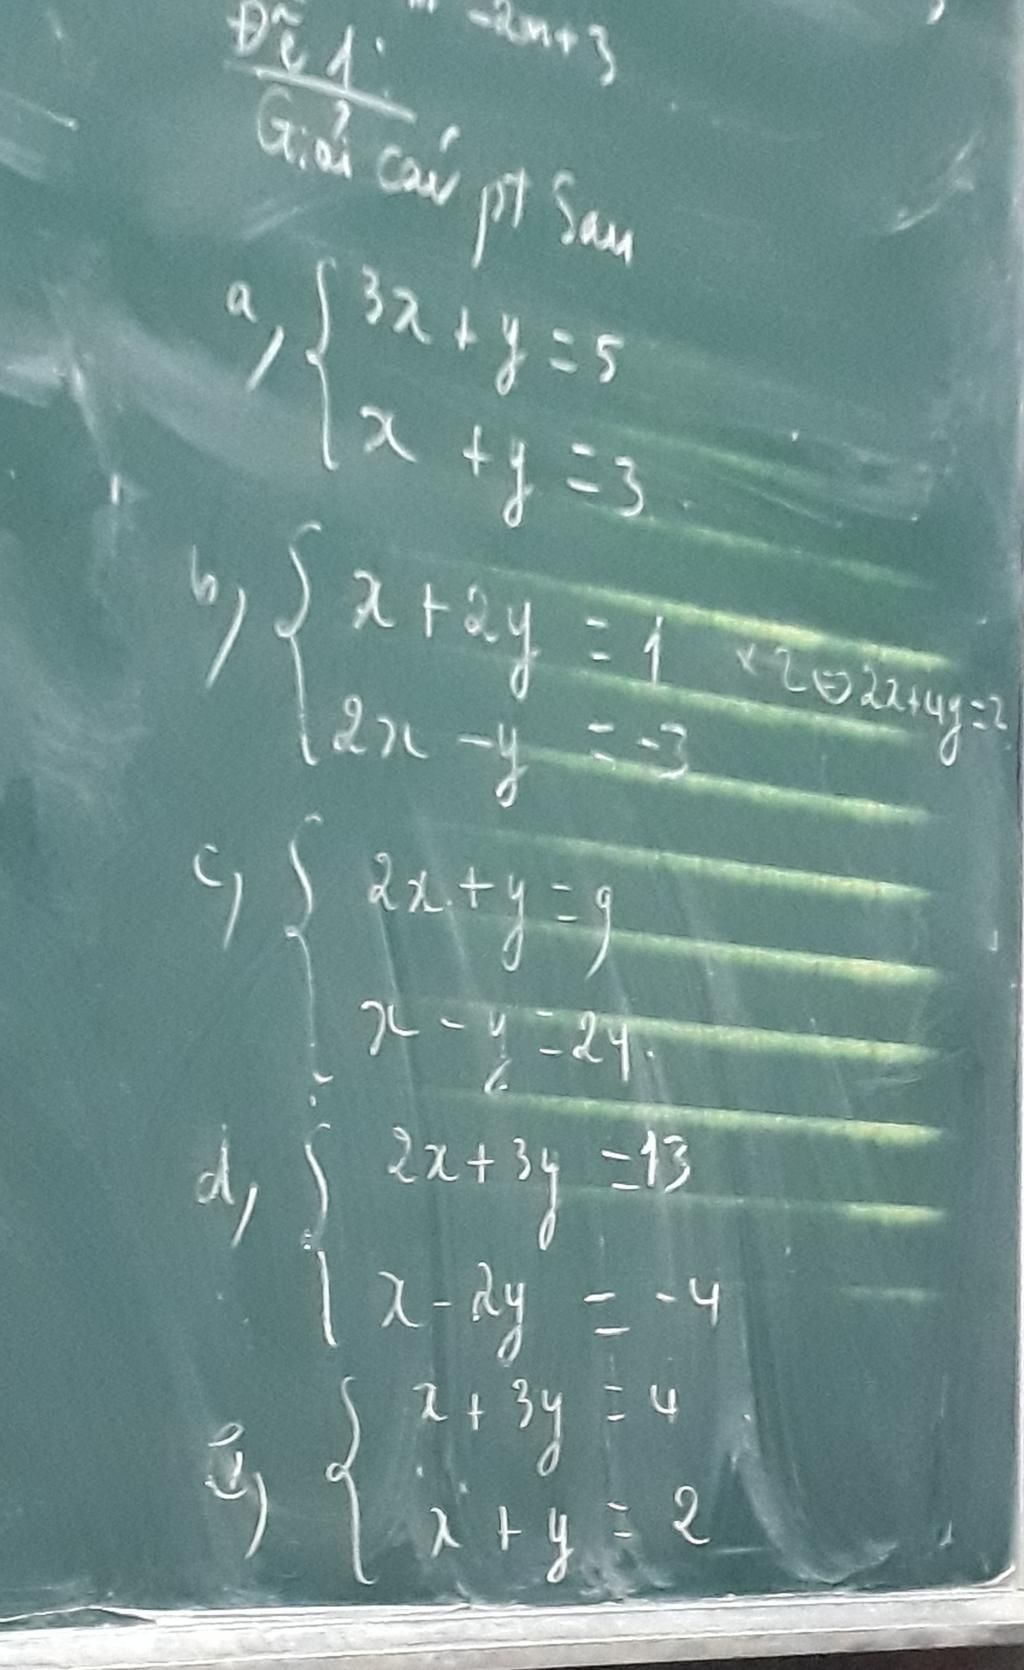 -2m+3
Đề 1:
Giải các pt sau
a, { 3x + y = 5
x + y = 3
b, { x + 2y = 1 x 2 ⇔ 2x+4y=2
2x - y = -3
c, { 2x + y = 9
x - y = 24
d, { 2x + 3y = 13
x - 2y = -4
e, { x + 3y = 4
x + y = 2